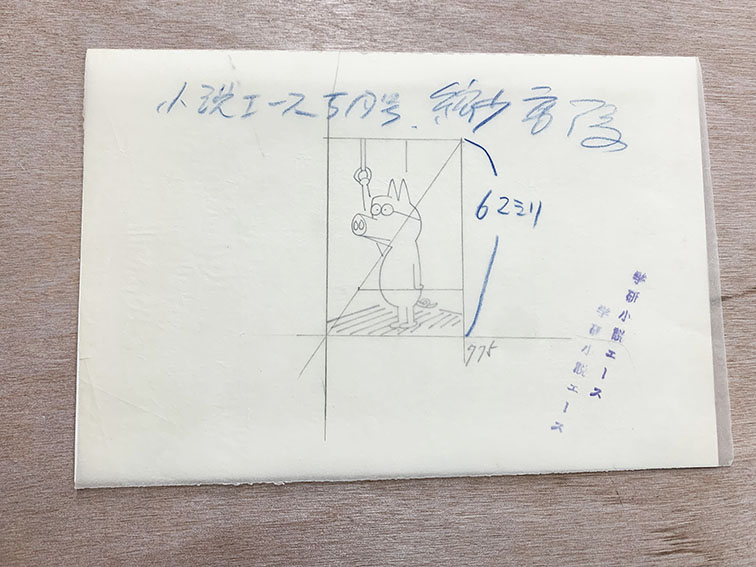 小説エース5月号
62ミリ
775
学研小説エース
学研小説エース